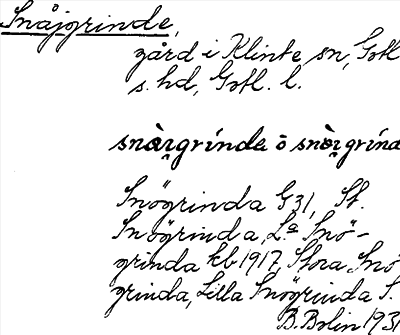 Snåjgrinde,
gård i Klinte sn, Gotl
s. hd, Gotl. l.
snàɪ̯grínde ō snòɪ̯grínd
Snögrinda G31, St.
Snögrinda, L:a Snö-
grinda kb 1917, Stora Snö
grinda, Lilla Snögrinda S.
B. Bolin 1931